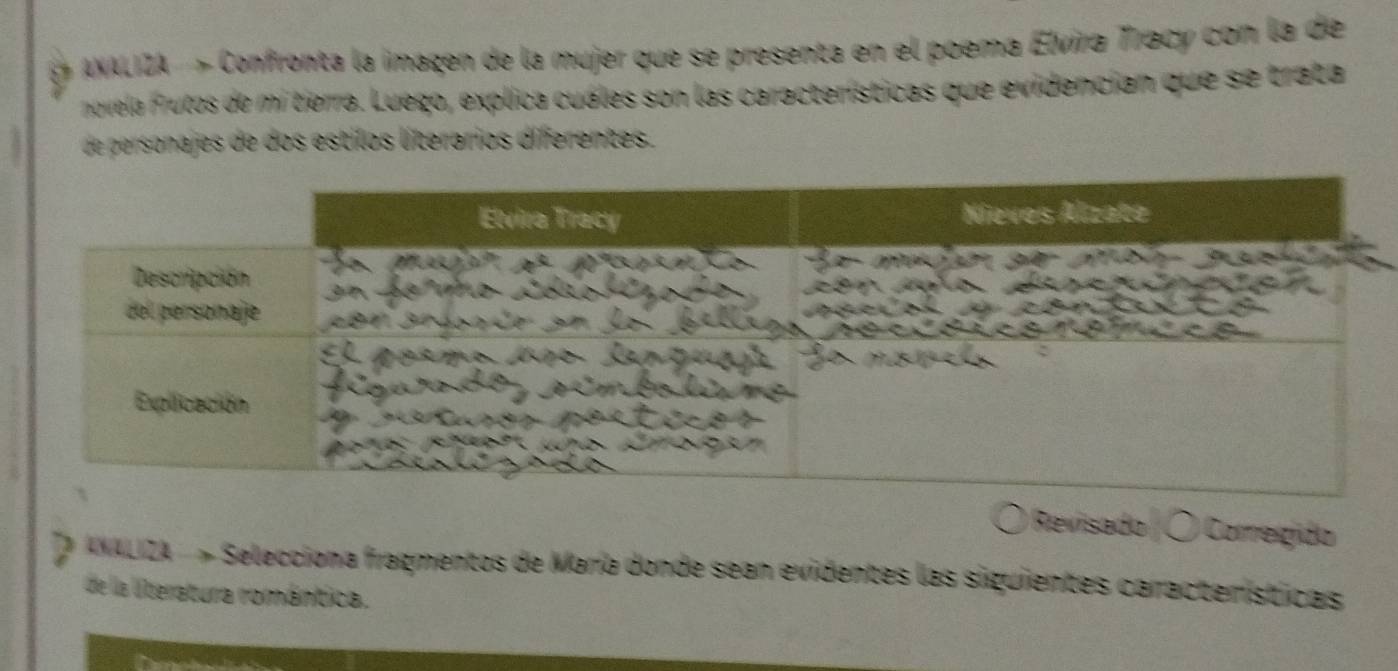 ANALIZA Confronta la imagen de la mujer que se presenta en el poema Elvira Tracy con la de
novela Frutos de mi tierra. Luego, explica cuáles son las características que evidencian que se trata
de personajes de dos estilos literarios diferentes.
Elvira Tracy
Nieves Alzate
Descripción
del personaje
La mujer se presenta
en forma idealizada,
con enfasis en la belleza
La mujer es mas realista
con una descripcion
social y contexto
socioiconomico
Explicación
El poema uso lenguaje
figurado, simbolismo
y recursos poeticos
para crear una imagen
idealizada
La novela
Revisado
Corregido
ANALIZA Selecciona fragmentos de María donde sean evidentes las siguientes características
de la literatura romántica.